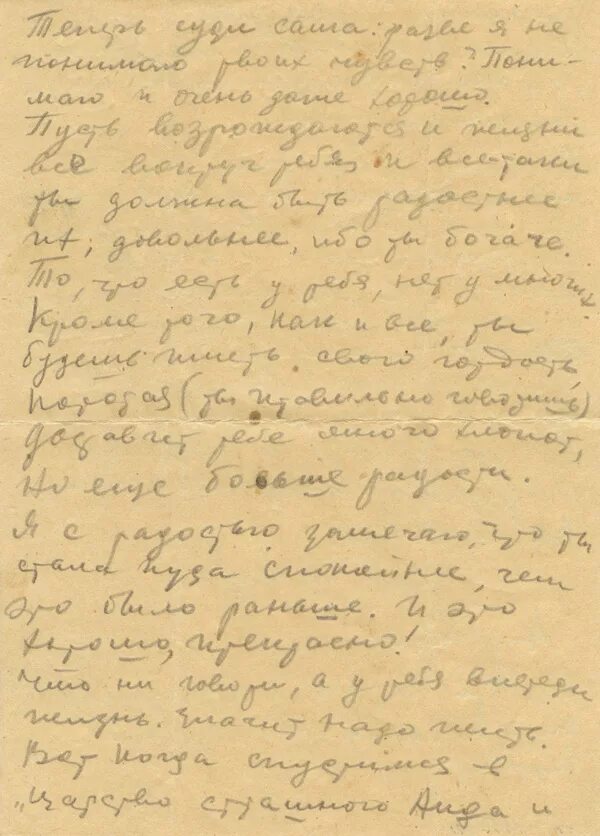 Теперь суди сама: разве я не
понимаю твоих чувств? Пони-
маю и очень даже хорошо.
Пусть возрождаются к жизни
все вокруг тебя и все-таки
ты должна быть радостнее
их, довольнее, ибо ты богаче.
То, что есть у тебя, нет у многих.
Кроме того, как и все, ты
будешь иметь свою гордость,
которая (ты правильно говоришь)
доставит тебе много хлопот,
но еще больше радости.
Я с радостью замечаю, что ты
стала куда спокойнее, чем
это было раньше. И это
хорошо, прекрасно!
Что ни говори, а у тебя впереди
жизнь. Значит надо жить.
Вот когда спустимся в
„царство страшного Аида и